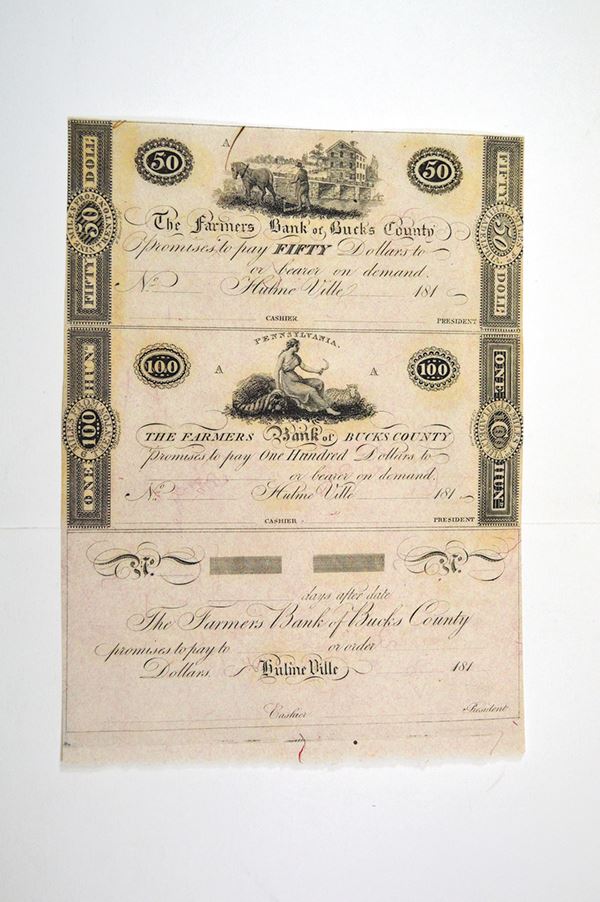 50 A 50
The Farmers Bank of Buck's County
promises to pay FIFTY Dollars to
or bearer on demand.
No. Hulme Ville 181
CASHIER. PRESIDENT
FIFTY 50 DOLL:
FIFTY 50 DOLL:
PENNSYLVANIA.
100 A A 100
THE FARMERS Bank of BUCKS COUNTY
promises to pay One Hundred Dollars to
or bearer on demand.
No. Hulme Ville 181
CASHIER PRESIDENT
ONE 100 HUN:
ONE 100 HUN:
No.
days after date
The Farmers Bank of Bucks County
promises to pay to or order
Dollars. Hulme Ville 181
Cashier President